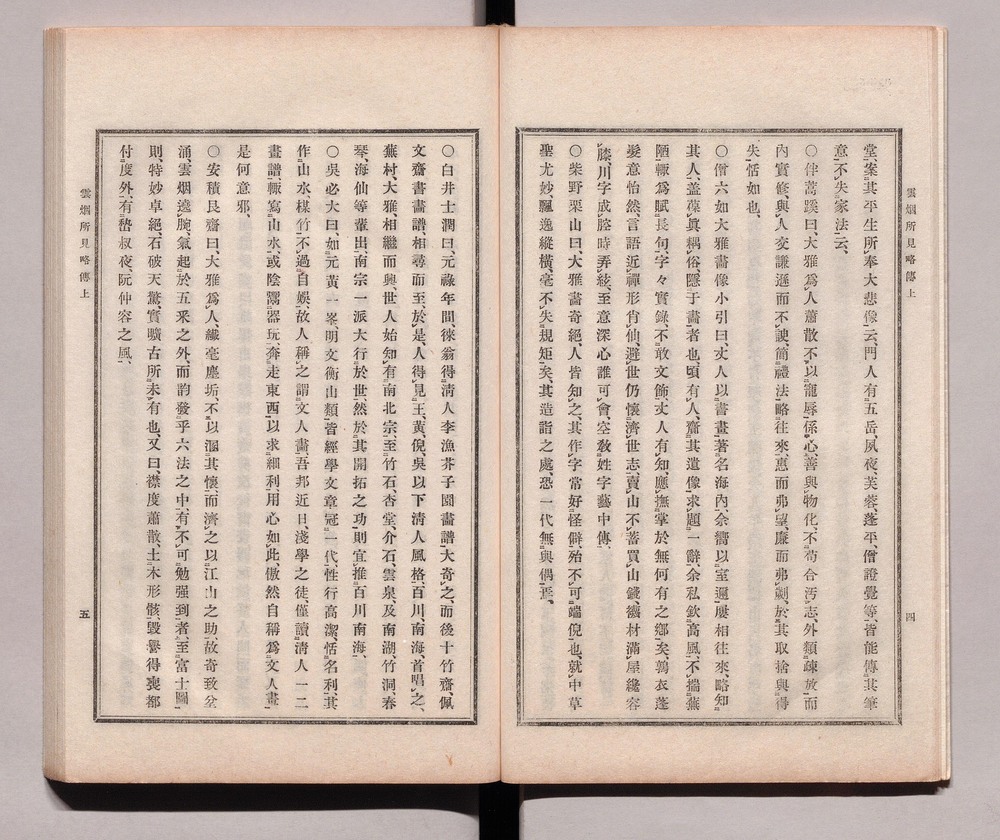 雲烟所見略傳上
四
堂案其平生所奉大悲像云、門人有五岳夙夜、芙蓉、蓬平僧證覺等、皆能傳其筆
意、不失家法云、
○伴蒿蹊曰、大雅爲人蕭散、不以寵辱係心、善與物化、不苟合汚志、外類疎放、而
內實修、與人交謙遜而不諛、簡禮法略往來、惠而弗望、廉而弗劌、於其取捨與得
失、恬如也、
○僧六如大雅畵像小引曰、丈人以書畫著名海內、余嚮以室邇屢相往來、略知
其人、盖葆眞耦俗、隱于畵者也、頃有人、齎其遺像求題一辭、余私欽高風、不揣蕪
陋、輙爲賦長句、字々實錄、不敢文飾、丈人有知、應撫掌於無何有之鄕矣、鶉衣蓬
髮意怡然、言語近禪形肖仙、避世仍懷濟世志、賣山不蓄買山錢、襪材滿屋纔容
膝、川字成腔時弄絃、至意深心誰可會、空敎姓字藝中傳、
○柴野栗山曰、大雅畵奇絕、人皆知之、其作字常好怪僻、殆不可端倪也、就中草
聖尤妙、飄逸縱橫、毫不失規矩矣、其造詣之處、恐一代無與偶焉、
○白井士潤曰、元祿年間、徠翁得淸人李漁芥子園畵譜、大奇之、而後十竹齋、佩
文齋書畵譜、相尋而至、於是、人得見王、黃、倪、吳以下淸人風格、百川、南海、首唱之、
蕪村、大雅、相繼而興、世人始知有南北宗、至竹石、杏堂、介石、雲泉、及南湖、竹洞、春
琴、海仙等輩出、南宗一派大行於世、然於其開拓之功、則宜推百川南海、
○吳必大曰、如元黃一峯、明文衡山類、皆經學文章冠一代、性行高潔、恬名利、其
作山水楳竹、不過自娛、故人稱之謂文人畵、吾邦近日、淺學之徒、僅讀淸人一二
畫譜、輙寫山水、或陰鬻器玩、奔走東西、以求細利、用心如此、傲然自稱爲文人畫、
是何意邪、
○安積艮齋曰、大雅爲人、纎毫塵垢、不以溷其懷、而濟之以江山之助、故奇致坌
涌、雲烟遶腕、氣起於五釆之外、而韵發乎六法之中、有不可勉强到者、至富士圖、
則特妙卓絕、石破天驚、實曠古所未有也、又曰、襟度蕭散、土木形骸、毀譽得喪都
付度外、有嵆叔夜、阮仲容之風、
雲烟所見略傳上
五